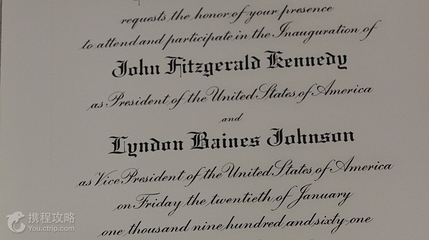 requests the honor of your presence
to attend and participate in the Inauguration of
John Fitzgerald Kennedy
as President of the United States of America
and
Lyndon Baines Johnson
as Vice President of the United States of America
on Friday the twentieth of January
one thousand nine hundred and sixty one
携程攻略
You.ctrip.com